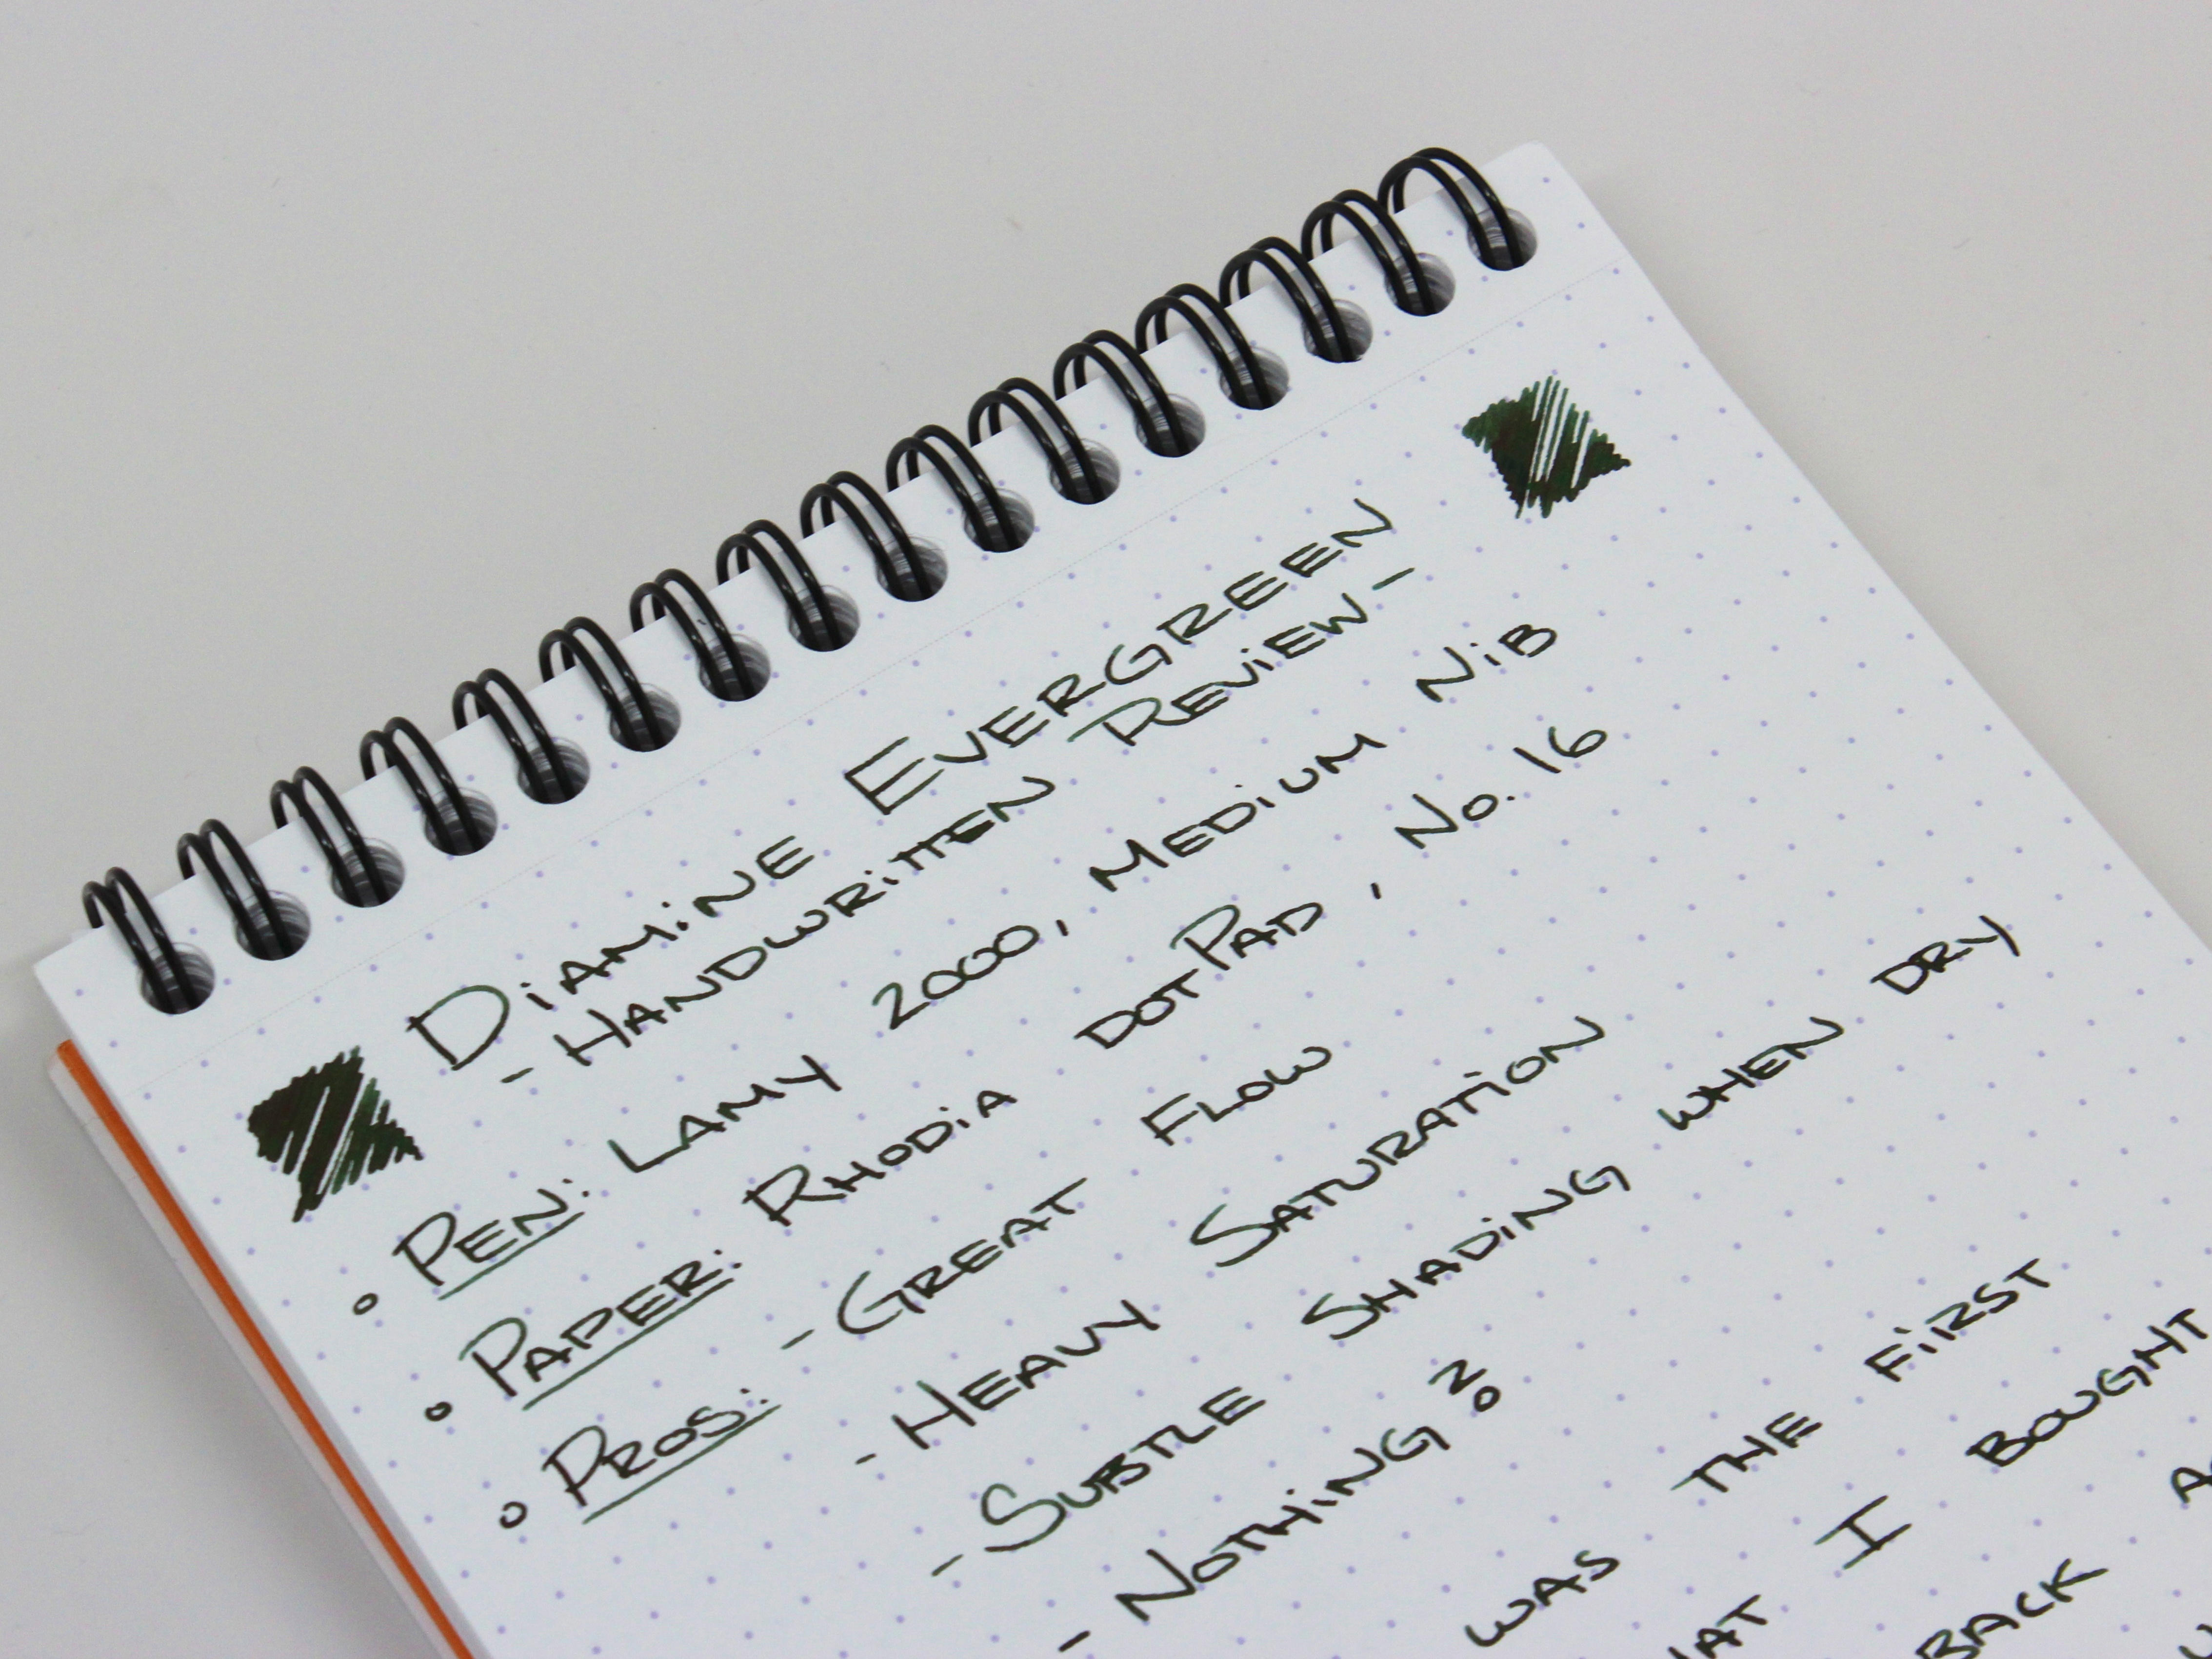 DiAMiNE EVERGREEN
- HANDWRiTTEN REViEW -
° PEN: LAMY 2000, MEDiUM NiB
° PAPER: RHODiA DOTPAD, No. 16
° PROS: - GREAT FLOW
- HEAVY SATURATiON
- SUBTLE SHADiNG WHEN DRY
- NOTHiNG
WAS THE FiRST
I BOUGHT
BACK